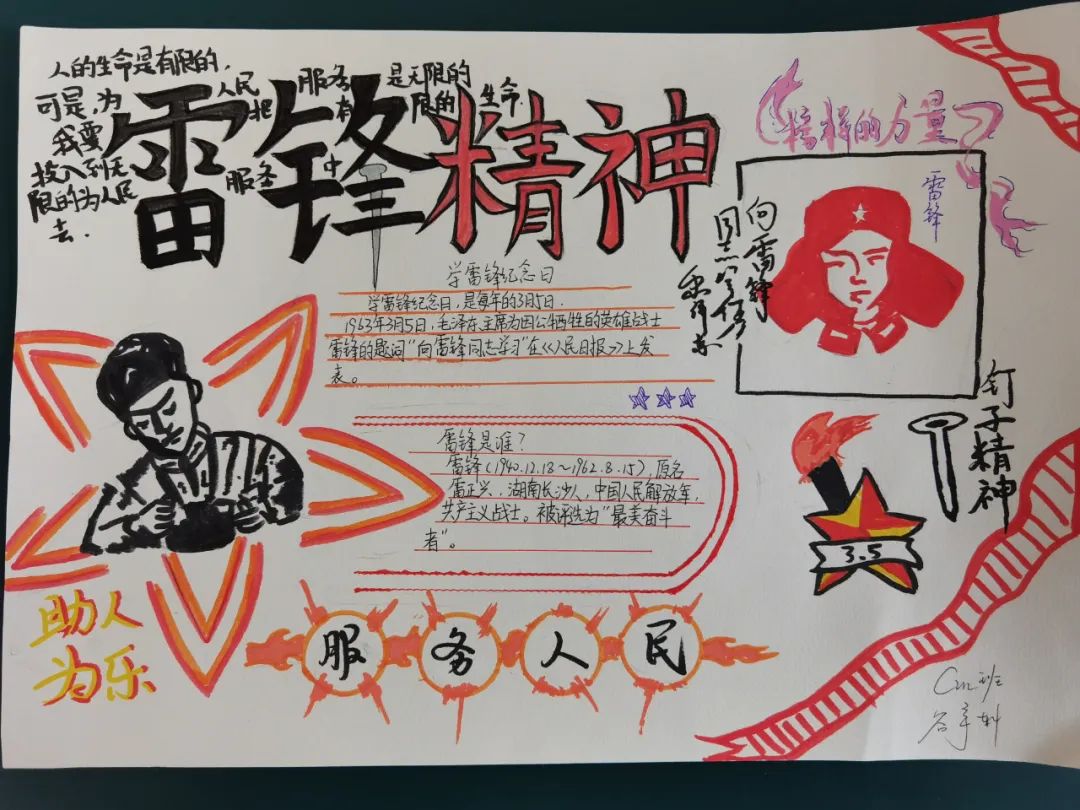 人的生命是有限的,
可是,为人民服务是无限的
我要把有限的生命,
投入到无
限的为人民服务中
去.
雷锋精神
榜样的力量
雷锋
向雷锋
同志学习
毛泽东
学雷锋纪念日
学雷锋纪念日,是每年的3月5日.
1963年3月5日,毛泽东主席为因公牺牲的英雄战士
雷锋的题词“向雷锋同志学习”在《人民日报》上发
表。
雷锋是谁?
雷锋(1940.12.18~1962.8.15),原名
雷正兴,湖南长沙人,中国人民解放军,
共产主义战士。被评选为“最美奋斗
者”。
钉子精神
3.5
助人
为乐
服务人民
班